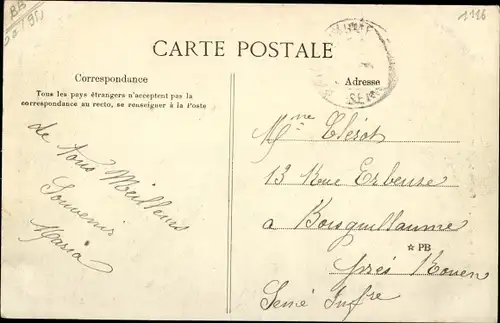 1126
CARTE POSTALE
Correspondance
Tous les pays étrangers n'acceptent pas la
correspondance au recto, se renseigner à la Poste
Adresse
de tous Meilleurs
Souvenirs
Maria
Mme Clérot
13 Rue Erbeuse
a Boisguillaume
☆ PB
près Rouen
Seine Infre